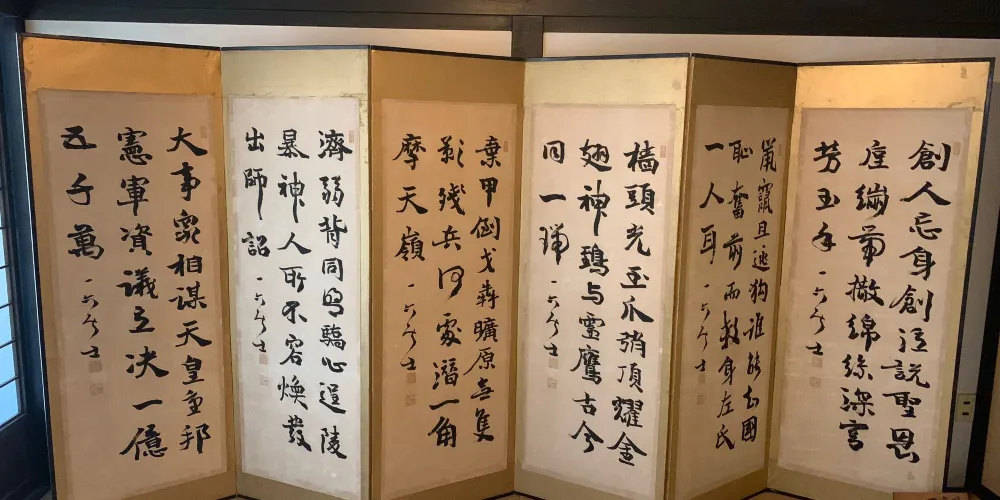 創人忘身創泣説聖恩
厚繃帯撒綿絲深宮
芳玉手 一六居士
鼠竄且狗誰能知國
恥奮前而救身左氏
一人耳 一六居士
檣頭光玉爪艄頂燿金
翅神鵄与靈鷹古今
同一瑞 一六居士
棄甲倒戈奔曠原無隻
影残兵何處潛一角
摩天嶺 一六居士
濟弱背同盟驕心逞陵
暴神人所不容煥發
出師詔 一六居士
大事衆相謀天皇重邦
憲軍資議立决一億
五千萬 一六居士